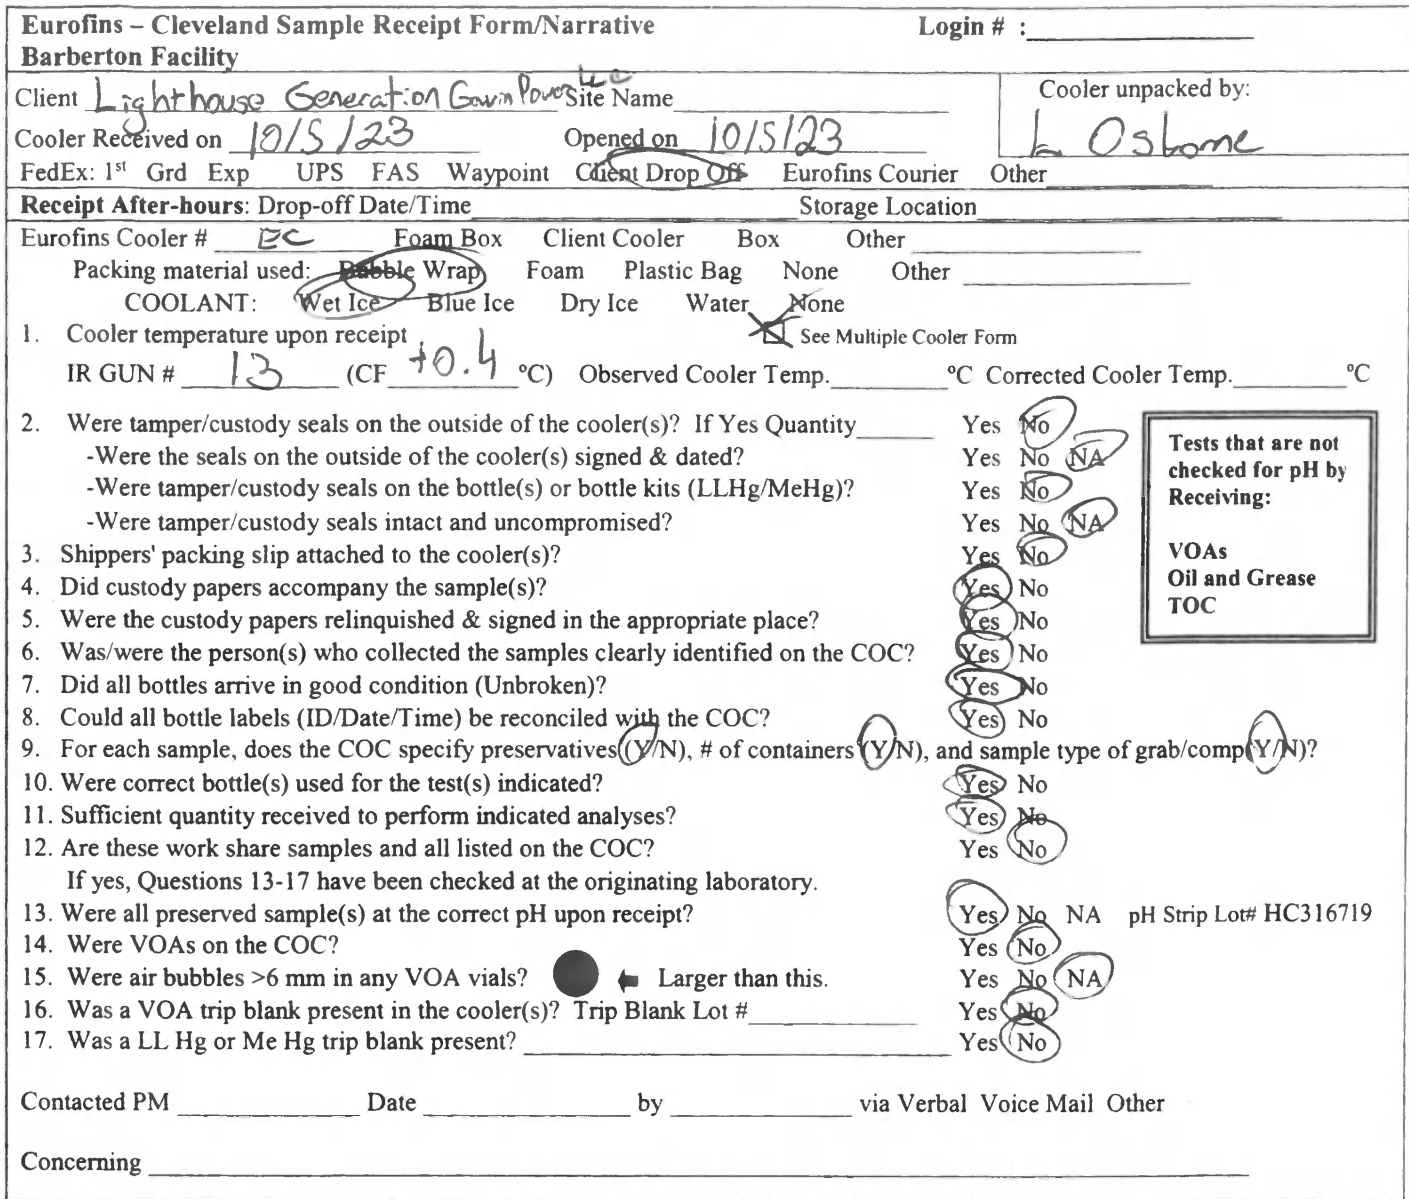 Eurofins – Cleveland Sample Receipt Form/Narrative Login # :
Barberton Facility
Client Lighthouse Generation Gavin Power LLC Site Name
Cooler unpacked by:
Cooler Received on 10/5/23 Opened on 10/5/23
L Osborne
FedEx: 1st Grd Exp UPS FAS Waypoint Client Drop Off Eurofins Courier Other
Receipt After-hours: Drop-off Date/Time Storage Location
Eurofins Cooler # EC Foam Box Client Cooler Box Other
Packing material used: Bubble Wrap Foam Plastic Bag None Other
COOLANT: Wet Ice Blue Ice Dry Ice Water None
1. Cooler temperature upon receipt See Multiple Cooler Form
IR GUN # 13 (CF +0.4 °C) Observed Cooler Temp. °C Corrected Cooler Temp. °C
2. Were tamper/custody seals on the outside of the cooler(s)? If Yes Quantity Yes No
-Were the seals on the outside of the cooler(s) signed & dated? Yes No NA
-Were tamper/custody seals on the bottle(s) or bottle kits (LLHg/MeHg)? Yes No
-Were tamper/custody seals intact and uncompromised? Yes No NA
3. Shippers' packing slip attached to the cooler(s)? Yes No
4. Did custody papers accompany the sample(s)? Yes No
5. Were the custody papers relinquished & signed in the appropriate place? Yes No
6. Was/were the person(s) who collected the samples clearly identified on the COC? Yes No
7. Did all bottles arrive in good condition (Unbroken)? Yes No
8. Could all bottle labels (ID/Date/Time) be reconciled with the COC? Yes No
Tests that are not
checked for pH by
Receiving:
VOAs
Oil and Grease
TOC
9. For each sample, does the COC specify preservatives (Y/N), # of containers (Y/N), and sample type of grab/comp(Y/N)?
10. Were correct bottle(s) used for the test(s) indicated? Yes No
11. Sufficient quantity received to perform indicated analyses? Yes No
12. Are these work share samples and all listed on the COC? Yes No
If yes, Questions 13-17 have been checked at the originating laboratory.
13. Were all preserved sample(s) at the correct pH upon receipt? Yes No NA pH Strip Lot# HC316719
14. Were VOAs on the COC? Yes No
15. Were air bubbles >6 mm in any VOA vials? Larger than this. Yes No NA
16. Was a VOA trip blank present in the cooler(s)? Trip Blank Lot # Yes No
17. Was a LL Hg or Me Hg trip blank present? Yes No
Contacted PM Date by via Verbal Voice Mail Other
Concerning